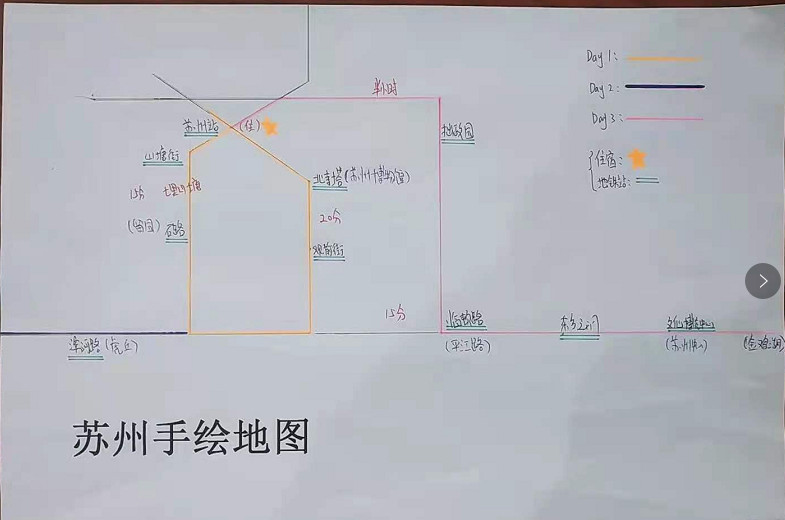 Day 1:
Day 2:
Day 3:
住宿:
地铁站:
半小时
苏州站 (住)
拙政园
山塘街
北寺塔(苏州博物馆)
15分
20分
(留园) 石路
观前街
15分
(平江路)
东方之门
文化博览中心
(苏州中心)
(金鸡湖)
(虎丘)
苏州手绘地图